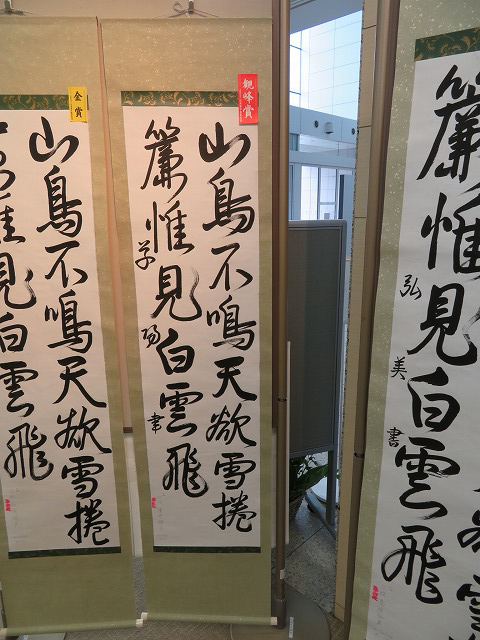 簾惟見白雲飛
弘美書
観峰賞
山鳥不鳴天欲雪捲
簾惟見白雲飛
書
金賞
山鳥不鳴天欲雪捲
見白雲飛